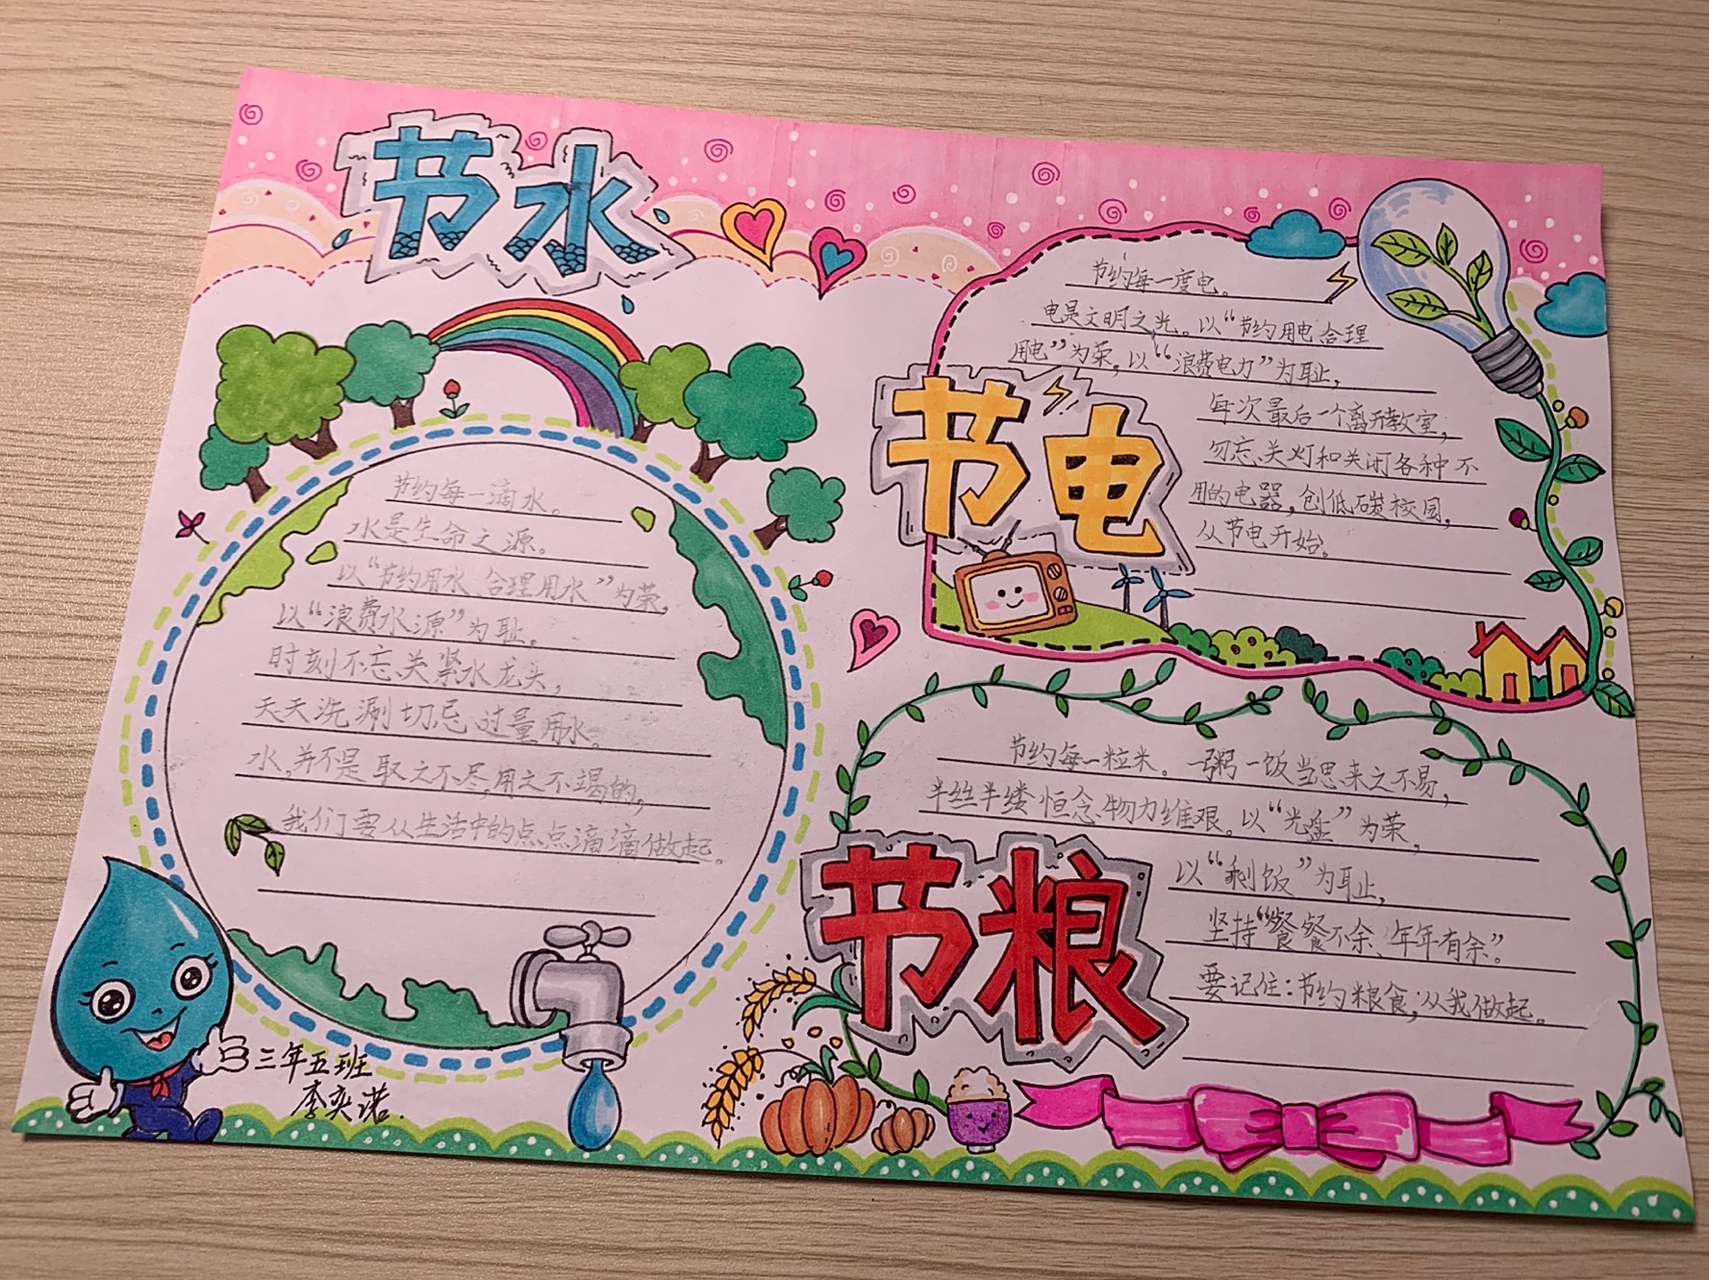 节水
节约每一滴水。
水是生命之源。
以“节约用水 合理用水”为荣,
以“浪费水源”为耻。
时刻不忘关紧水龙头,
天天洗涮切忌过量用水。
水,并不是取之不尽,用之不竭的,
我们要从生活中的点点滴滴做起。
三年五班
李奕诺.
节约每一度电。
电是文明之光。以“节约用电合理
用电”为荣,以“浪费电力”为耻,
节电
每次最后一个离开教室,
勿忘关灯和关闭各种不
用的电器,创低碳校园,
从节电开始。
节约每一粒米。一粥一饭当思来之不易,
半丝半缕恒念物力维艰。以“光盘”为荣,
节粮
以“剩饭”为耻,
坚持“餐餐不余、年年有余”。
要记住:节约粮食,从我做起。